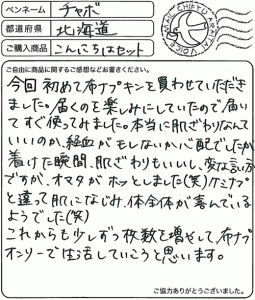 ペンネーム チャボ
都道府県 北海道
ご購入商品 こんにちはセット
ご自由に商品に関するご感想などお書きください。
今回初めて布ナプキンを買わせていただき
ました。届くのを楽しみにしていたので届い
てすぐ使ってみました。本当に肌ざわりなんて
いいのか、経血がもしないか心配でしたが
着けた瞬間、肌ざわりもいいし、変な言い方
ですが、オマタがホッとしました(笑)ケミナプ
と違って肌になじみ、体全体が喜んでいる
ようでした(笑)
これからも少しずつ枚数を増やして、布ナプ
オンリーで生活していこうと思います。
ご協力ありがとうございました。